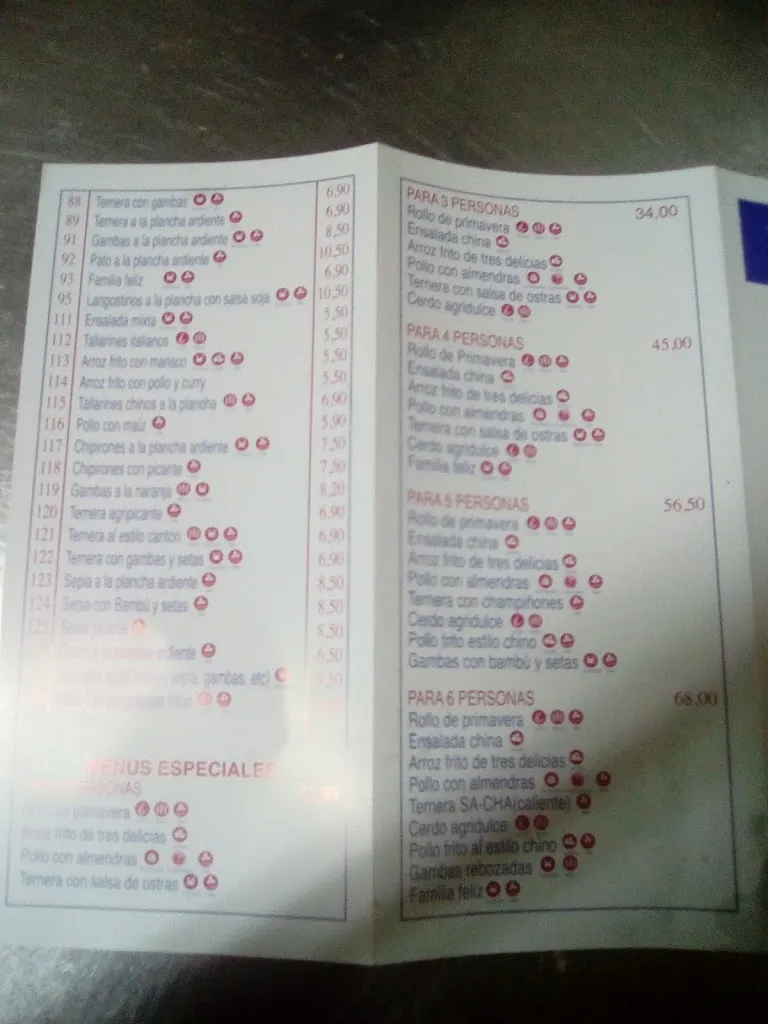 88 Ternera con gambas 6,90
89 Ternera a la plancha ardiente 6,90
91 Gambas a la plancha ardiente 8,50
92 Pato a la plancha ardiente 10,50
93 Familia feliz 6,90
95 Langostinos a la plancha con salsa soja 10,50
111 Ensalada mixta 5,50
112 Tallarines italianos 5,50
113 Arroz frito con marisco 5,50
114 Arroz frito con pollo y curry 5,50
115 Tallarines chinos a la plancha 6,90
116 Pollo con maíz 5,90
117 Chipirones a la plancha ardiente 7,50
118 Chipirones con picante 7,50
119 Gambas a la naranja 8,20
120 Ternera agripicante 6,90
121 Ternera al estilo cantón 6,90
122 Ternera con gambas y setas 6,90
123 Sepia a la plancha ardiente 8,50
124 Sepia con Bambú y setas 8,50
125 Sepia picante 8,50
a la plancha ardiente 6,50
sepia, gambas, etc)
MENUS ESPECIALES
PERSONAS
Rollo de primavera
Arroz frito de tres delicias
Pollo con almendras
Ternera con salsa de ostras
PARA 3 PERSONAS 34,00
Rollo de primavera
Ensalada china
Arroz frito de tres delicias
Pollo con almendras
Ternera con salsa de ostras
Cerdo agridulce
PARA 4 PERSONAS 45,00
Rollo de Primavera
Ensalada china
Arroz frito de tres delicias
Pollo con almendras
Ternera con salsa de ostras
Cerdo agridulce
Familia feliz
PARA 5 PERSONAS 56,50
Rollo de primavera
Ensalada china
Arroz frito de tres delicias
Pollo con almendras
Ternera con champiñones
Cerdo agridulce
Pollo frito estilo chino
Gambas con bambú y setas
PARA 6 PERSONAS 68,00
Rollo de primavera
Ensalada china
Arroz frito de tres delicias
Pollo con almendras
Ternera SA-CHA(caliente)
Cerdo agridulce
Pollo frito al estilo chino
Gambas rebozadas
Familia feliz